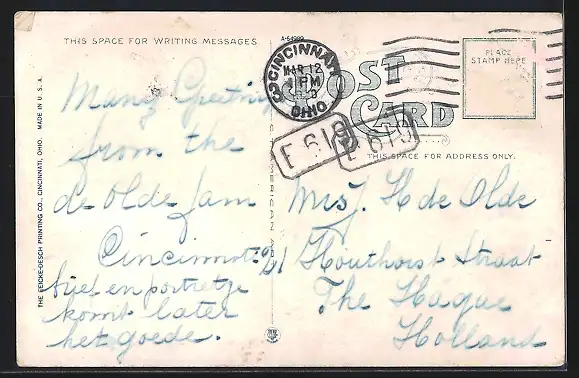 THIS SPACE FOR WRITING MESSAGES
A-54999
CINCINNATI
MAR 12
PM
OHIO
POST
CARD
PLACE
STAMP HERE
F 619
F 619
THIS SPACE FOR ADDRESS ONLY.
MADE IN U.S.A.
THE FEICKE-DESCH PRINTING CO., CINCINNATI, OHIO.
Many Greetings
from the
de Olde fam
Cincinnati
brief en portretje
komt later
het goede.
Mrs J. H de Olde
21 Houthorst Straat
The Hague
Holland